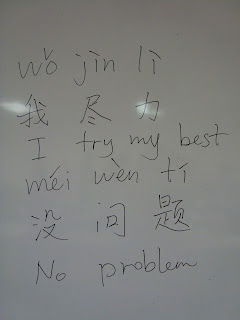 wǒ jìn lì
我 尽 力
I try my best
méi wèn tí
没 问 题
No problem